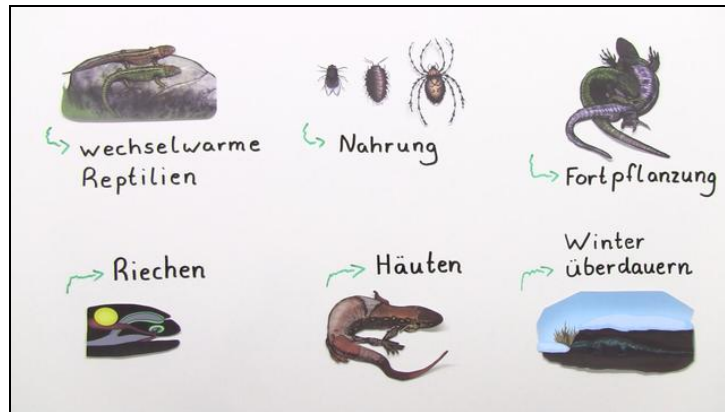 wechselwarme
Reptilien
Nahrung
Fortpflanzung
Riechen
Häuten
Winter
überdauern